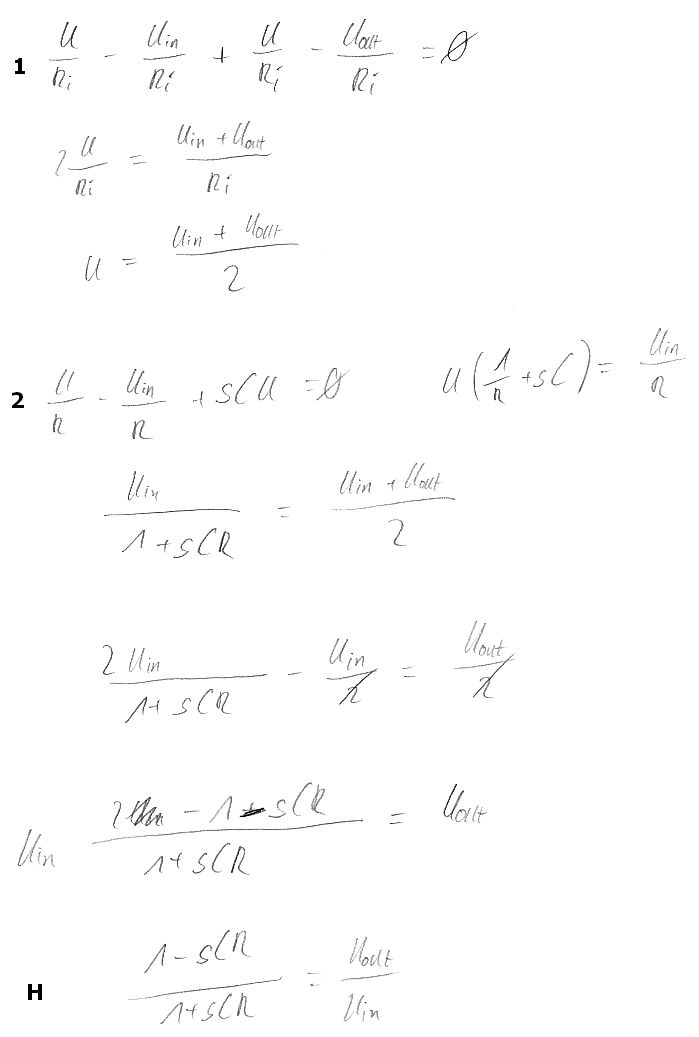 1 U/Ri - Uin/Ri + U/Ri - Uout/Ri = 0
2 U/Ri = (Uin + Uout)/Ri
U = (Uin + Uout)/2
2 U/R - Uin/R + sCU = 0 U(1/R + sC) = Uin/R
Uin/(1 + sCR) = (Uin + Uout)/2
2 Uin/(1 + sCR) - Uin/2 = Uout/2
Uin (2 - 1 - sCR)/(1 + sCR) = Uout
H (1 - sCR)/(1 + sCR) = Uout/Uin